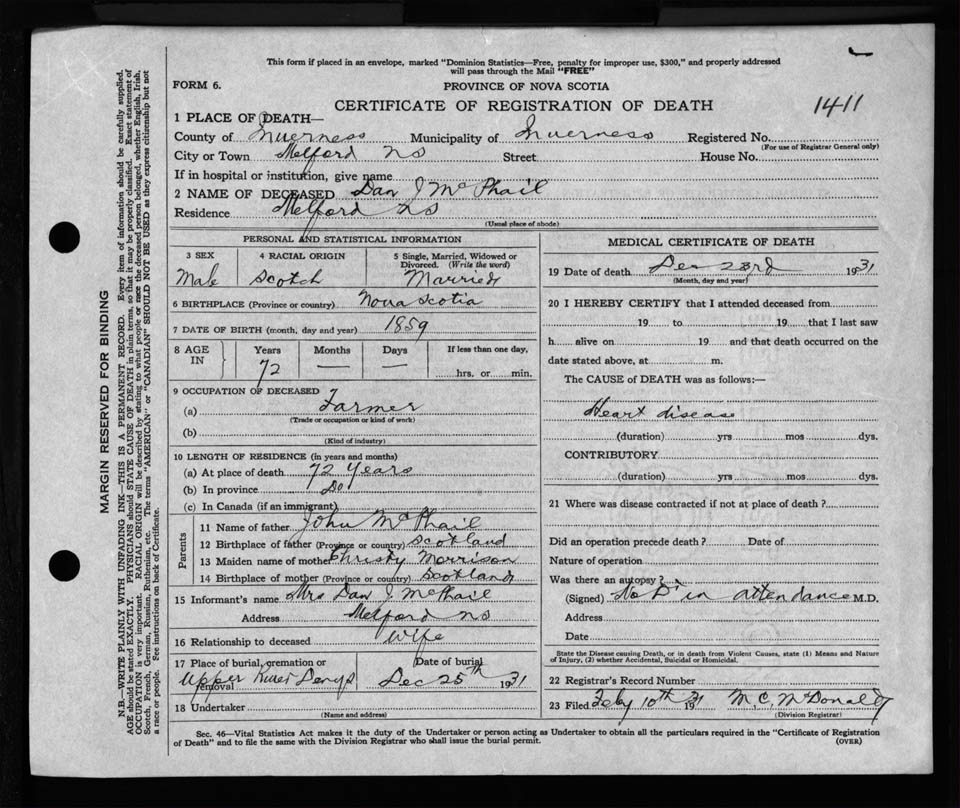 This form if placed in an envelope, marked "Dominion Statistics—Free, penalty for improper use, $300," and properly addressed
will pass through the Mail "FREE"
FORM 6.
PROVINCE OF NOVA SCOTIA
CERTIFICATE OF REGISTRATION OF DEATH
1411
1 PLACE OF DEATH—
County of Inverness Municipality of Inverness Registered No.
(For use of Registrar General only)
City or Town Melford NS Street House No.
If in hospital or institution, give name
2 NAME OF DECEASED Dan J McPhail
Residence Melford NS
(Usual place of abode)
PERSONAL AND STATISTICAL INFORMATION
3 SEX 4 RACIAL ORIGIN 5 Single, Married, Widowed or
Divorced. (Write the word)
Male Scotch Married
6 BIRTHPLACE (Province or country) Nova Scotia
7 DATE OF BIRTH (month, day and year) 1859
8 AGE IN Years Months Days If less than one day,
72 — — hrs. or min.
9 OCCUPATION OF DECEASED
(a) Farmer
(Trade or occupation or kind of work)
(b)
(Kind of industry)
10 LENGTH OF RESIDENCE (in years and months)
(a) At place of death 72 Years
(b) In province Do
(c) In Canada (if an immigrant)
Parents
11 Name of father John McPhail
12 Birthplace of father (Province or country) Scotland
13 Maiden name of mother Christy Morrison
14 Birthplace of mother (Province or country) Scotland
15 Informant's name Mrs Dan J. McPhail
Address Melford NS
16 Relationship to deceased Wife
17 Place of burial, cremation or removal Date of burial
Upper River Denys Dec 25th 1931
18 Undertaker
(Name and address)
MEDICAL CERTIFICATE OF DEATH
19 Date of death Dec 23rd 1931
(Month, day and year)
20 I HEREBY CERTIFY that I attended deceased from
19 to 19 that I last saw
h alive on 19 and that death occurred on the
date stated above, at m.
The CAUSE of DEATH was as follows:—
Heart disease
(duration) yrs mos dys.
CONTRIBUTORY
(duration) yrs mos dys.
21 Where was disease contracted if not at place of death?
Did an operation precede death? Date of
Nature of operation
Was there an autopsy?
(Signed) No Dr in attendance M.D.
Address
Date
State the Disease causing Death, or in death from Violent Causes, state (1) Means and Nature
of Injury, (2) whether Accidental, Suicidal or Homicidal.
22 Registrar's Record Number
23 Filed Feby 10th 1931 M. C. McDonald
(Division Registrar)
Sec. 46—Vital Statistics Act makes it the duty of the Undertaker or person acting as Undertaker to obtain all the particulars required in the "Certificate of Registration
of Death" and to file the same with the Division Registrar who shall issue the burial permit.
(OVER)
MARGIN RESERVED FOR BINDING
N.B.—WRITE PLAINLY WITH UNFADING INK—THIS IS A PERMANENT RECORD. Every item of information should be carefully supplied.
AGE should be stated EXACTLY. PHYSICIANS should STATE CAUSE OF DEATH in plain terms, so that it may be properly classified. Exact statement of
OCCUPATION is very important. RACIAL ORIGIN will be described by stating to what people or race the deceased person belonged, whether English, Irish,
Scotch, French, German, Russian, Ruthenian, etc. The terms "AMERICAN" or "CANADIAN" SHOULD NOT BE USED as they express citizenship but not
a race or people. See instructions on back of Certificate.